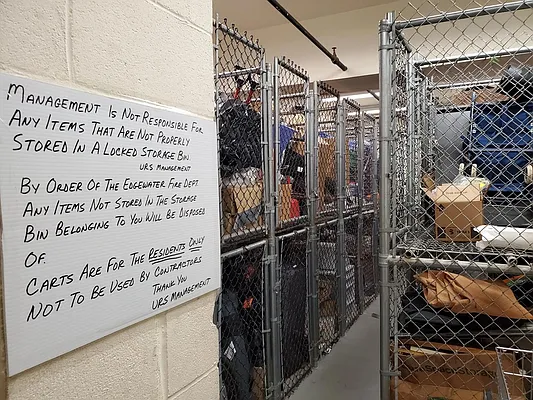 Management Is Not Responsible For
Any Items That Are Not Properly
Stored In A Locked Storage Bin
URS Management
By Order Of The Edgewater Fire Dept.
Any Items Not Stored In The Storage
Bin Belonging To You Will Be Disposed
Of.
Carts Are For The Residents Only
Not To Be Used By Contractors
Thank You
URS Management